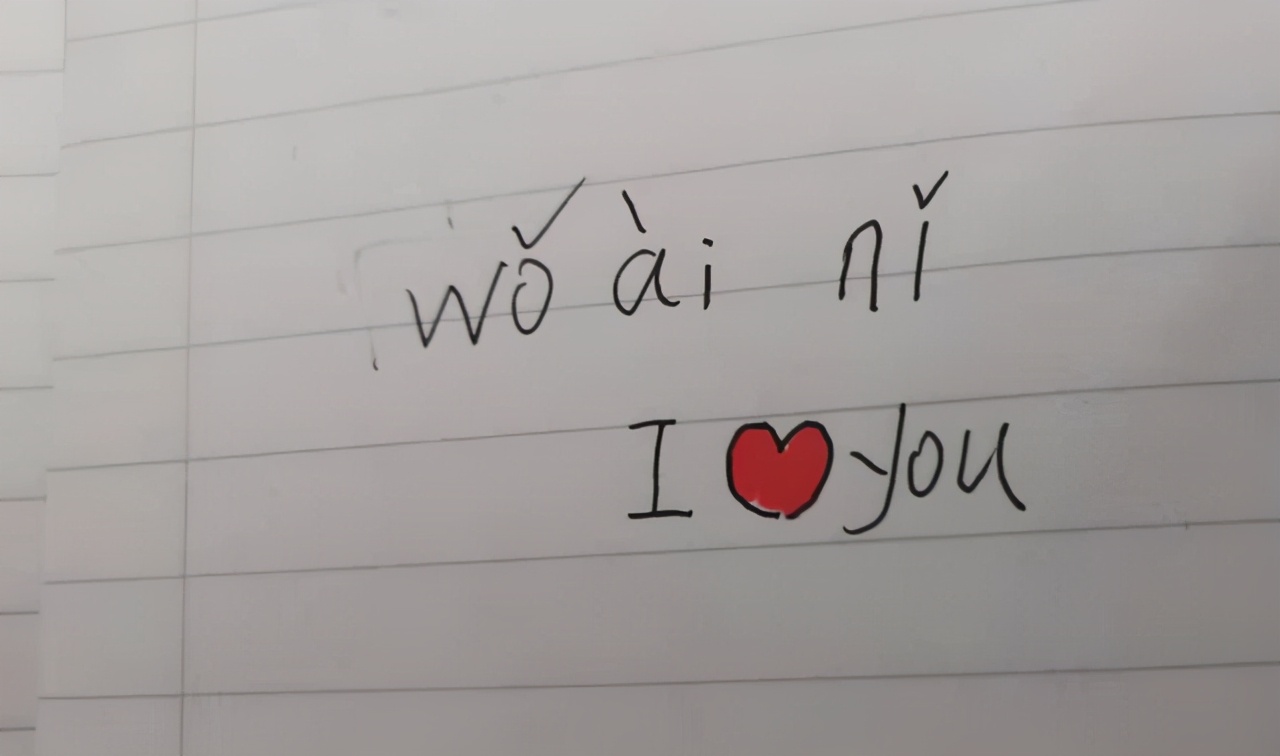 wǒ ài nǐ
I ❤ you